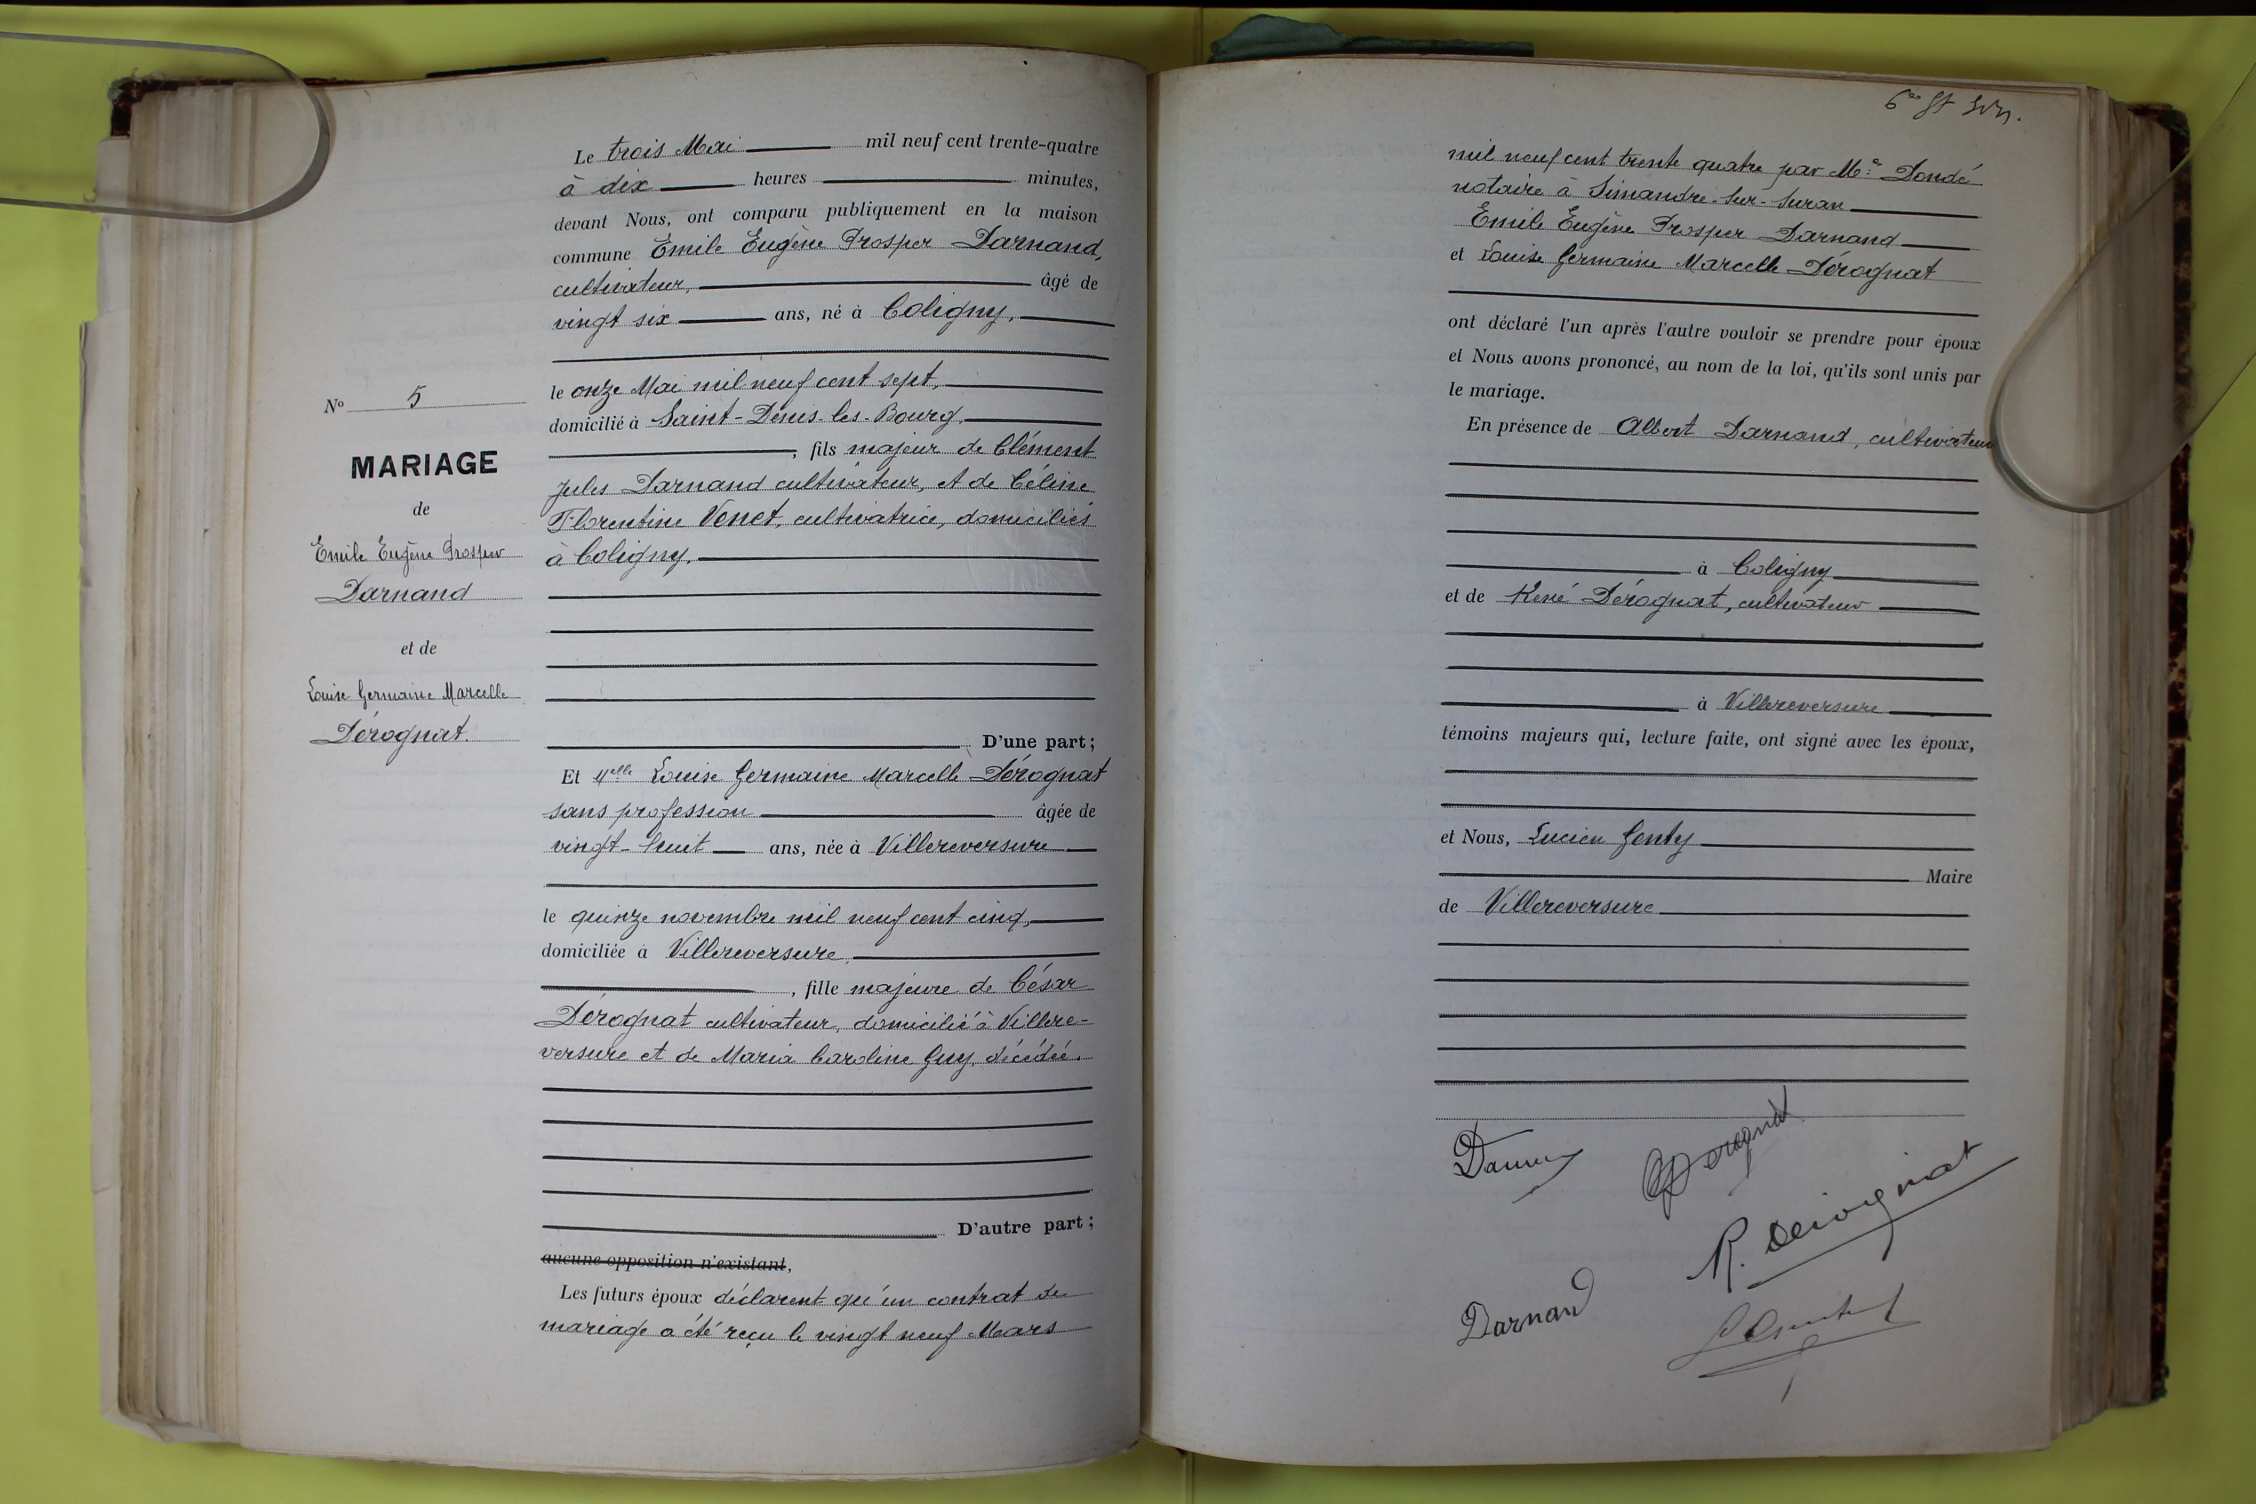 N° 5
MARIAGE
de
Emile Eugène Prosper
Darnand
et de
Louise Germaine Marcelle
Dérognat.
Le trois Mai mil neuf cent trente-quatre
à dix heures minutes,
devant Nous, ont comparu publiquement en la maison
commune Emile Eugène Prosper Darnand,
cultivateur, âgé de
vingt six ans, né à Coligny,
le onze Mai mil neuf cent sept,
domicilié à Saint-Denis-les-Bourg,
, fils majeur de Clément
Jules Darnand cultivateur, et de Céline
Florentine Venet, cultivatrice, domiciliés
à Coligny.
D'une part;
Et Melle Louise Germaine Marcelle Dérognat
sans profession âgée de
vingt-huit ans, née à Villereversure
le quinze novembre mil neuf cent cinq,
domiciliée à Villereversure,
, fille majeure de César
Dérognat cultivateur, domicilié à Villere-
versure et de Maria Caroline Guy, décédée.
D'autre part;
aucune opposition n'existant,
Les futurs époux déclarent qu'un contrat de
mariage a été reçu le vingt neuf Mars
mil neuf cent trente quatre par Me Dondé
notaire à Simandre-sur-Suran
Emile Eugène Prosper Darnand
et Louise Germaine Marcelle Dérognat
ont déclaré l'un après l'autre vouloir se prendre pour époux
et Nous avons prononcé, au nom de la loi, qu'ils sont unis par
le mariage.
En présence de Albert Darnand, cultivateur
à Coligny
et de René Dérognat, cultivateur
à Villereversure
témoins majeurs qui, lecture faite, ont signé avec les époux,
et Nous, Lucien Genty
Maire
de Villereversure
Derognat
R. Derognat
Darnand